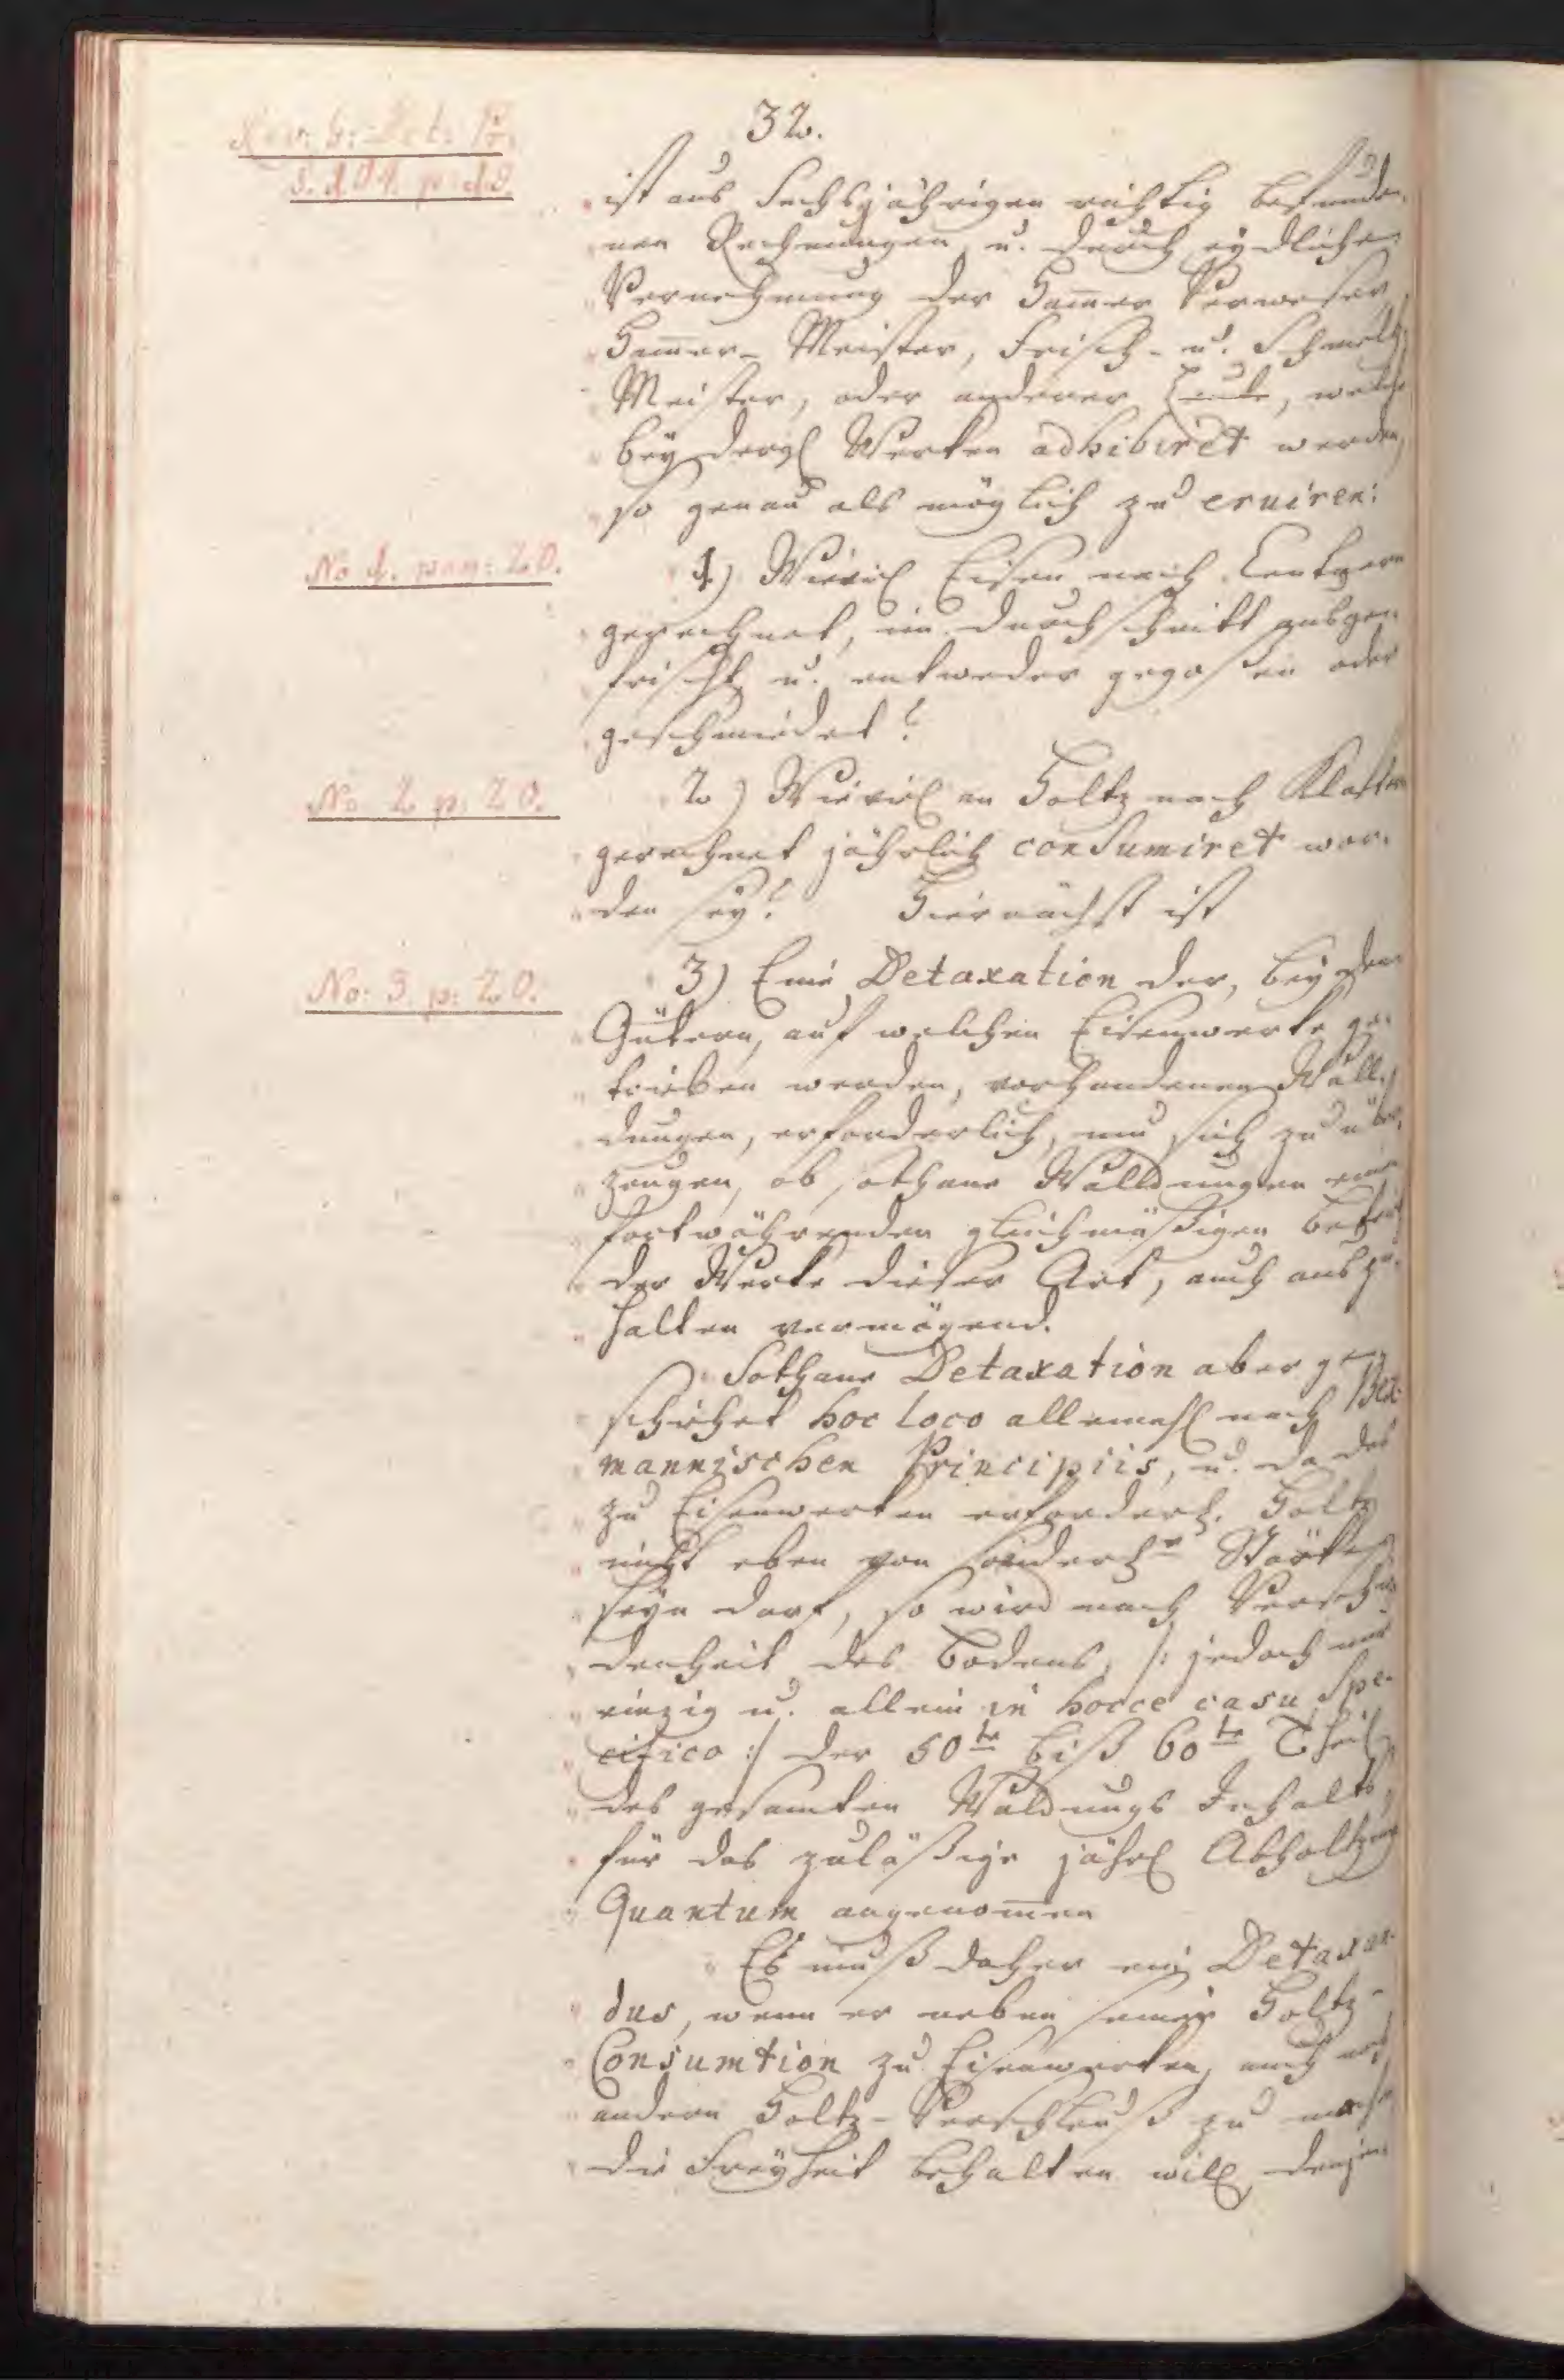 32.
ist aus Sechsjährigen richtig befunde-
nen Rechnungen, u. durch eydliche
Vernehmung der Ham̄er Verweser
Ham̄er-Meister, Frisch- u. Schmeltz
Meister, oder anderer Leute, welche
bey dergl Werken adhibiret werden,
so genau als möglich zu eruiren:
No 1. pag: 20.
1) Wieviel Eisen nach Centnern
gerechnet, im Durchschnitt ausge-
frischt u. entweder gegoßen oder
geschmiedet?
No. 2 p: 20.
2) Wieviel an Holtz nach Klaftern
gerechnet jährlich consumiret wor-
den sey? Hiernächst ist
No: 3. p: 20.
3) Eine Detaxation der, bey den
Gütern, auf welchen Eisenwerke ge-
trieben werden, vorhandenen Wall-
dungen, erforderlich, um sich zu über-
zeugen, ob sothane Walldungen einen
fortwährenden gleichmäßigen Betrieb
der Werke dieser Art, auch auszu-
halten vermögend.
Sothane Detaxation aber ge-
schiehet hoc loco allemahl nach Bek-
mannischen Principiis, u. da das
zu Eisenwerken erforderl. Holtz
nicht eben von sonderl.r Stärke
seyn darf, so wird nach Verschie-
denheit des Bodens, /: jedoch nur
einzig u. allein in hocce casu Spe-
cifico :/ der 50te biß 60te Theil
des gesamten Waldungs Inhalts,
für das zuläßige jährl Abholtzungs
Quantum angenom̄en
Es muß daher ein Detaxan-
dus, wenn er neben seiner Holtz-
Consumtion zu Eisenwerken, auch noch
andern Holtz-Verschleuß zu machen
die Freyheit behalten will, denjen-